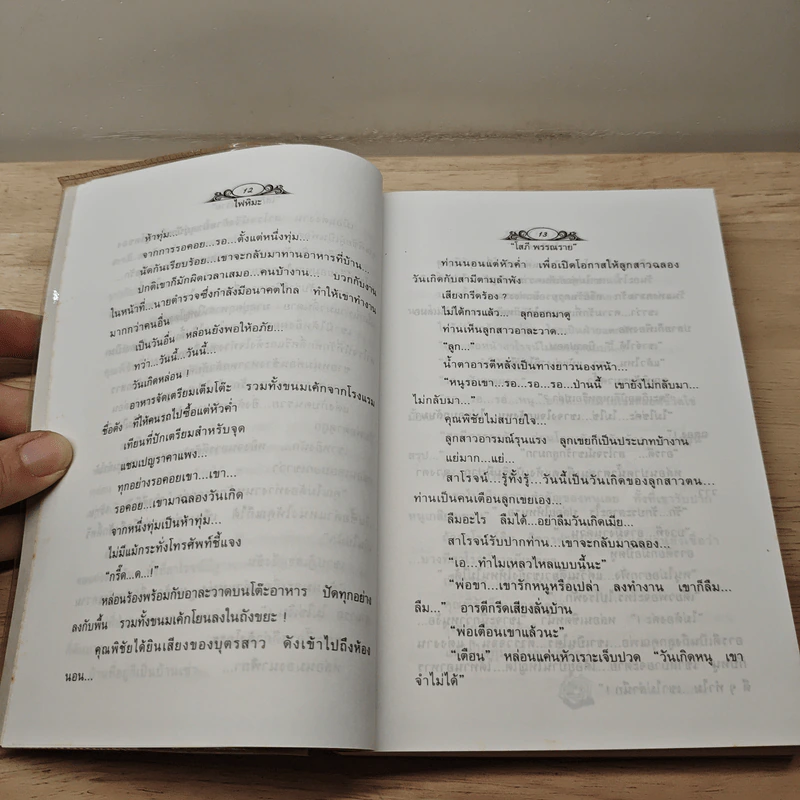 12
ไฟหิมะ
ห้าทุ่ม...
จากการรอคอย...รอ...ตั้งแต่หนึ่งทุ่ม...
นัดกันเรียบร้อย...เขาจะกลับมาทานอาหารที่บ้าน...
ปกติเขาก็มักผิดเวลาเสมอ...คนบ้างาน... บวกกับงาน
ในหน้าที่...นายตำรวจซึ่งกำลังมีอนาคตไกล ทำให้เขาทำงาน
มากกว่าคนอื่น
เป็นวันอื่น หล่อนยังพอให้อภัย...
ทว่า...วันนี้...วันนี้...
วันเกิดหล่อน !
อาหารจัดเตรียมเต็มโต๊ะ รวมทั้งขนมเค้กจากโรงแรม
ชื่อดัง ที่ให้คนรถไปซื้อแต่หัวค่ำ
เทียนที่ปักเตรียมสำหรับจุด
แชมเปญราคาแพง...
ทุกอย่างรอคอยเขา...เขา...
รอคอย...เขามาฉลองวันเกิด
จากหนึ่งทุ่มเป็นห้าทุ่ม...
ไม่มีแม้กระทั่งโทรศัพท์ชี้แจง
“กรี๊ด...ด...!”
หล่อนร้องพร้อมกับอาละวาดบนโต๊ะอาหาร ปัดทุกอย่าง
ลงกับพื้น รวมทั้งขนมเค้กโยนลงในถังขยะ !
คุณพิชัยได้ยินเสียงของบุตรสาว ดังเข้าไปถึงห้อง
นอน...
13
“โสภี พรรณราย”
ท่านนอนแต่หัวค่ำ เพื่อเปิดโอกาสให้ลูกสาวฉลอง
วันเกิดกับสามีตามลำพัง
เสียงกรีดร้อง ?
ไม่ได้การแล้ว... ลูกออกมาดู
ท่านเห็นลูกสาวอาละวาด...
“ลูก...”
น้ำตาอารตีหลั่งเป็นทางยาวนองหน้า...
“หนูรอเขา...รอ...รอ...รอ...ป่านนี้ เขายังไม่กลับมา...
ไม่กลับมา...”
คุณพิชัยไม่สบายใจ...
ลูกสาวอารมณ์รุนแรง ลูกเขยก็เป็นประเภทบ้างาน
แย่มาก...แย่...
สาโรจน์...รู้ทั้งรู้...วันนี้เป็นวันเกิดของลูกสาวตน...
ท่านเป็นคนเตือนลูกเขยเอง...
ลืมอะไร ลืมได้...อย่าลืมวันเกิดเมีย...
สาโรจน์รับปากท่าน...เขาจะกลับมาฉลอง...
“เอ...ทำไมเหลวไหลแบบนี้นะ”
“พ่อขา...เขารักหนูหรือเปล่า ลงทำงาน เขาก็ลืม...
ลืม...” อารตีกรีดเสียงลั่นบ้าน
“พ่อเตือนเขาแล้วนะ”
“เตือน” หล่อนแค่นหัวเราะเจ็บปวด “วันเกิดหนู เขา
จำไม่ได้”